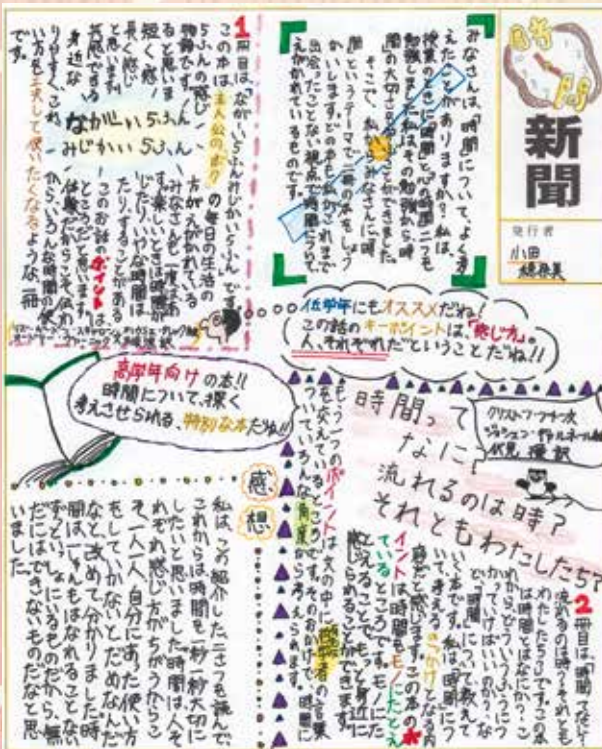 時間
新聞
発行者
小田
みなさんは、「時間」について、よく考
えたことがありますか？私は、
授業のときに「時間」と「心の時間」二つも
勉強しました。私はその勉強から時
間の大切さを
ことができました。
そこで、私からみなさんに「時
間」というテーマで二冊の本をしょう
かいします。どの本も私がこれまで
出会ったことない視点で時間について、
えがかれているものです。
1冊目は、「ながーい5ふんみじかい5ふん」です。
この本は、主人公のボク の毎日の生活の
5ふんの感じ 方がえがかれている
物語です。 みなさんも一度はあ
ると思いま す。楽しいときは時間が
短く感じ じたり、いやな時間は
長く感じ たり、することがある
と思います。このお話のポイントは、
共感できる ところだと思います。
身近な 体験だからこそ伝わ
りやすく、これ からいろんな時間の使
い方を工夫して使いたくなるような一冊
です。
ながーい5ふん
みじかい5ふん
低学年にもオススメだね！
この話のキーポイントは、「感じ方」。
人、それぞれだということだね!!
高学年向けの本!!
時間について、深く
考えさせられる、特別な本だね!!
時間って
なに？
流れるのは時？
それともわたしたち？
クリストフ・ブトン 文
ジョシェン・ギャルネール 絵
伏見 操 訳
2冊目は、「時間ってなに？
流れるのは時？それとも
わたしたち？」です。この本
は時間とはなにか？こ
れから、どういうふうにつ
かっていけばいいのか？な
ど、「時間」について教えて
いく本です。私は「時間」につ
いて、考えるきっかけとなる内
容だと感じます。この本のポ
イントは時間をモノにたとえ
ているところです。モノにた
とえることで、もっと身近に
感じられることができます。
もう一つのポイントは文の中に哲学者の言葉
を交えているところです。そのおかげで、時間に
ついていろんな角度から考えられます。
感想
私は、この紹介した二さつを読んで、
これからは時間を一秒一秒大切に
したいと思いました。時間は人そ
れぞれ感じ方がちがうからこ
そ、一人一人、自分にあった使い方
をしていかないとだめなんだ
なと、改めて分かりました。時
間は一しゅんもはなれることない
ずっといっしょにいるものだから、無
だにはできないものだなと思
いました。